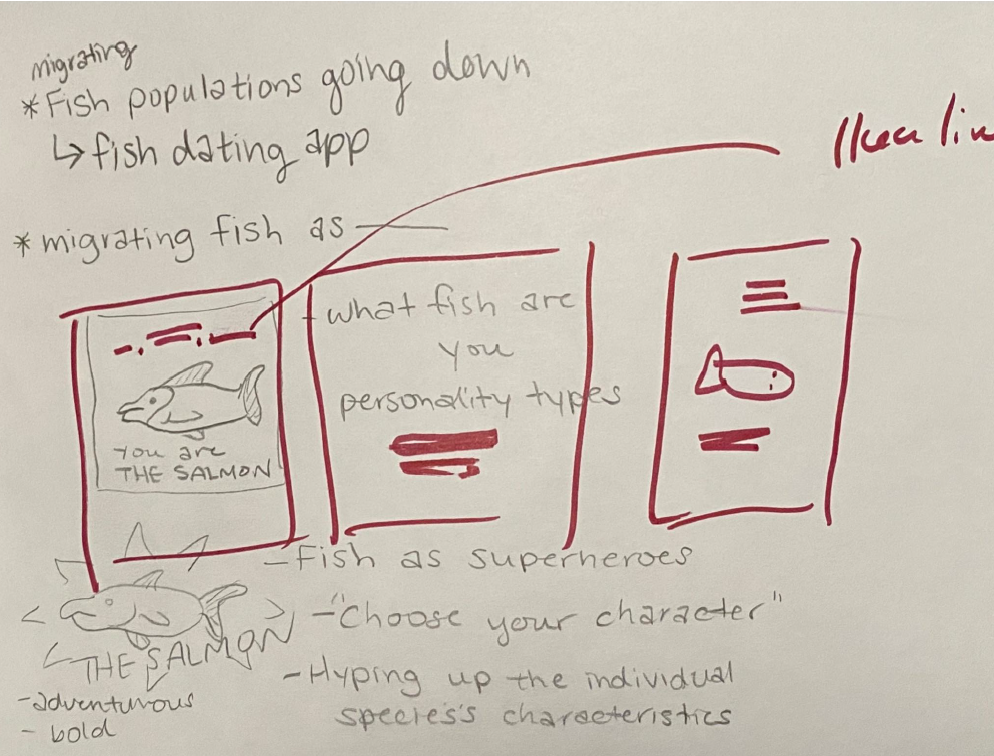 migrating
* Fish populations going down
↳ fish dating app
* migrating fish as
- what fish are
you
personality types
You are
THE SALMON
- Fish as superheroes
- "Choose your character"
THE SALMON
- Hyping up the individual
species's characteristics
- adventurous
- bold